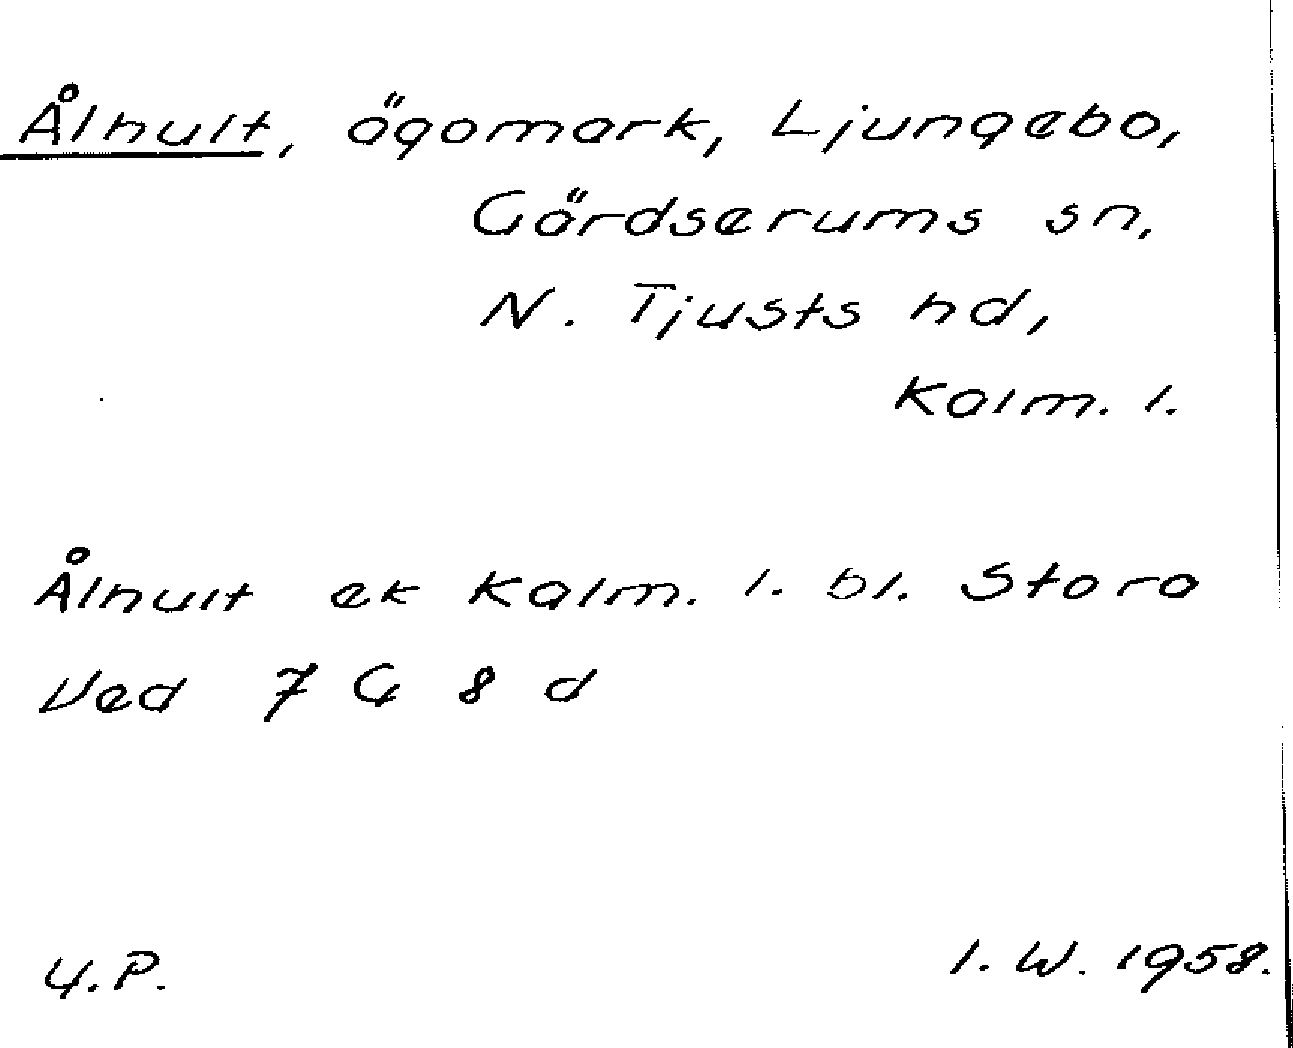 Ålhult, ägomark, Ljungebo,
Gärdserums sn,
N. Tjusts hd,
Kalm. l.
Ålhult ek Kalm. l. bl. Stora
Ved 7 G 8 d
U.P. I. W. 1958.